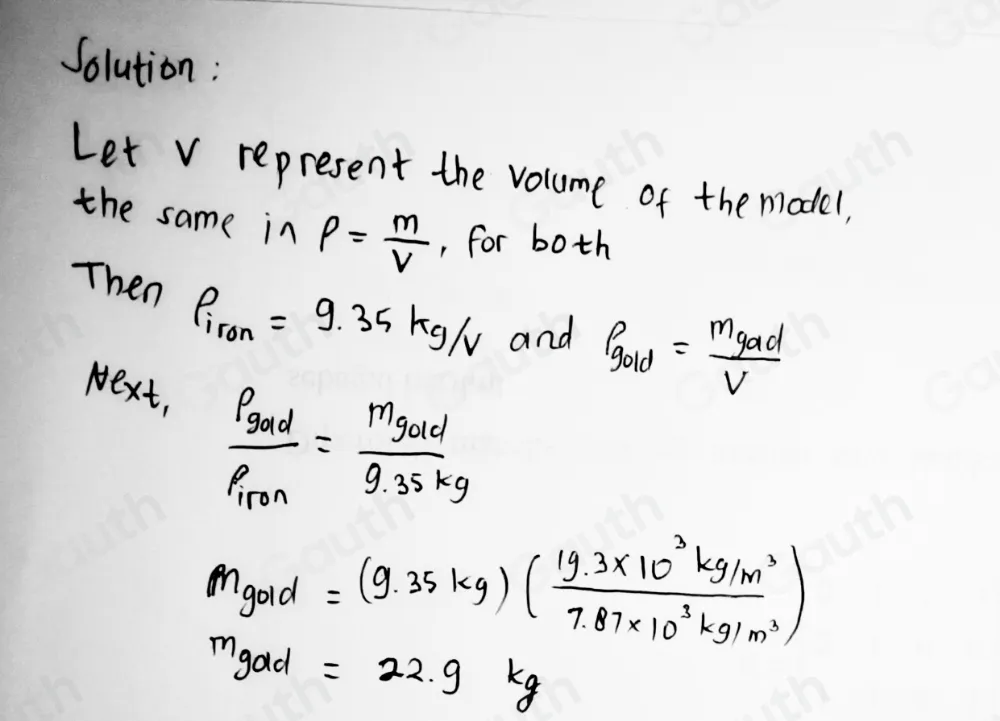 Solution:
Let V represent the volume of the model,
the same in ρ = m/V, for both
Then ρiron = 9.35 kg/V and ρgold = mgold/V
Next, ρgold/ρiron = mgold/9.35 kg
mgold = (9.35 kg) (19.3 × 10³ kg/m³ / 7.87 × 10³ kg/m³)
mgold = 22.9 kg